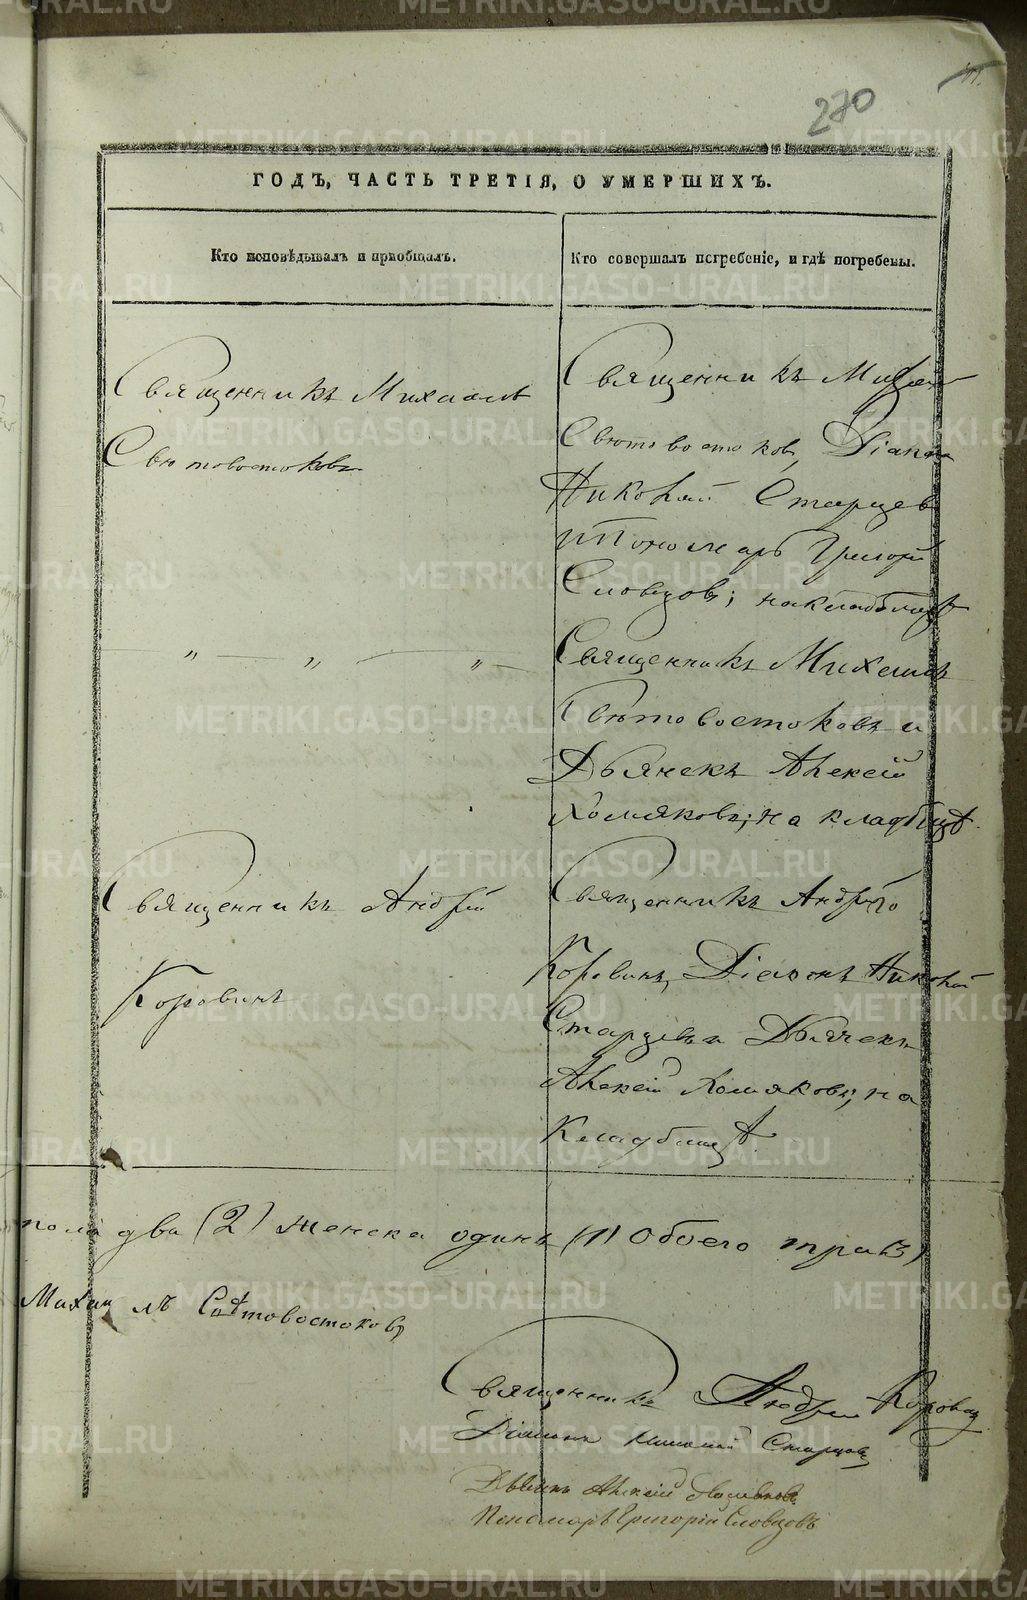 270
ГОДЪ, ЧАСТЬ ТРЕТІЯ, О УМЕРШИХЪ.
Кто исповѣдывалъ и пріобщалъ.
Кто совершалъ погребеніе, и гдѣ погребены.
Священникъ Михаилъ
Свѣтовостоковъ
Священникъ Михаилъ
Свѣтовостоковъ, Діаконъ
Николай Старцевъ
и Пономарь Григорій
Словцовъ; на кладбищѣ
" — " — " —
Священникъ Михаилъ
Свѣтовостоковъ и
Дьячекъ Алексій
Хомяковъ; на кладбищѣ.
Священникъ Андрей
Коровинъ
Священникъ Андрей
Коровинъ, Діаконъ Николай
Старцевъ и Дьячекъ
Алексій Хомяковъ; на
Кладбищѣ.
пола два (2) женска одинъ (1) Обоего трехъ)
Михаилъ Свѣтовостоковъ
Священникъ Андрей Коровинъ
Діаконъ Николай Старцовъ
Дьячекъ Алексій Хомяковъ
Пономарь Григорій Словцовъ
METRIKI.GASO-URAL.RU